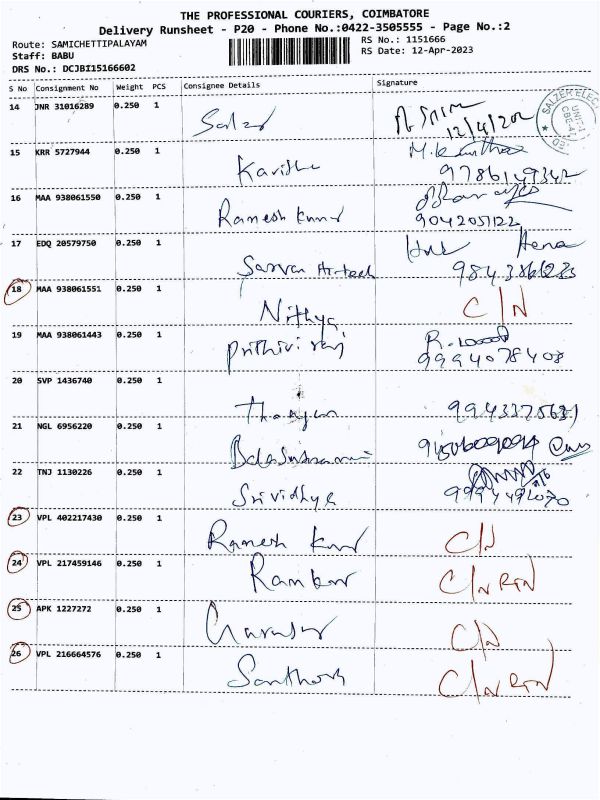 THE PROFESSIONAL COURIERS, COIMBATORE
Delivery Runsheet - P20 - Phone No.:0422-3505555 - Page No.:2
Route: SAMICHETTIPALAYAM
RS No.: 1151666
Staff: BABU
RS Date: 12-Apr-2023
DRS No.: DCJBI15166602
S No Consignment No Weight PCS Consignee Details Signature
14 JNR 31016289 0.250 1
Salzer 12/4/202
SALZER ELEC UNIT-1
15 KRR 5727944 0.250 1
Kavitha 9786149342
16 MAA 938061550 0.250 1
Ramesh Kumar 9042051122
17 EDQ 20579750 0.250 1 Hena
Sarvan Airtech
18 MAA 938061551 0.250 1 C/N
Nithya
19 MAA 938061443 0.250 1
Prithivi raj 9994078408
20 SVP 1436740 0.250 1
21 NGL 6956220 0.250 1
22 TNJ 1130226 0.250 1
Srividhya
23 VPL 402217430 0.250 1
Ramesh Kumar C/N
24 VPL 217459146 0.250 1
Ramkumar C/N RTN
25 APK 1227272 0.250 1
C/N
26 VPL 216664576 0.250 1
Santhosh C/N RTN